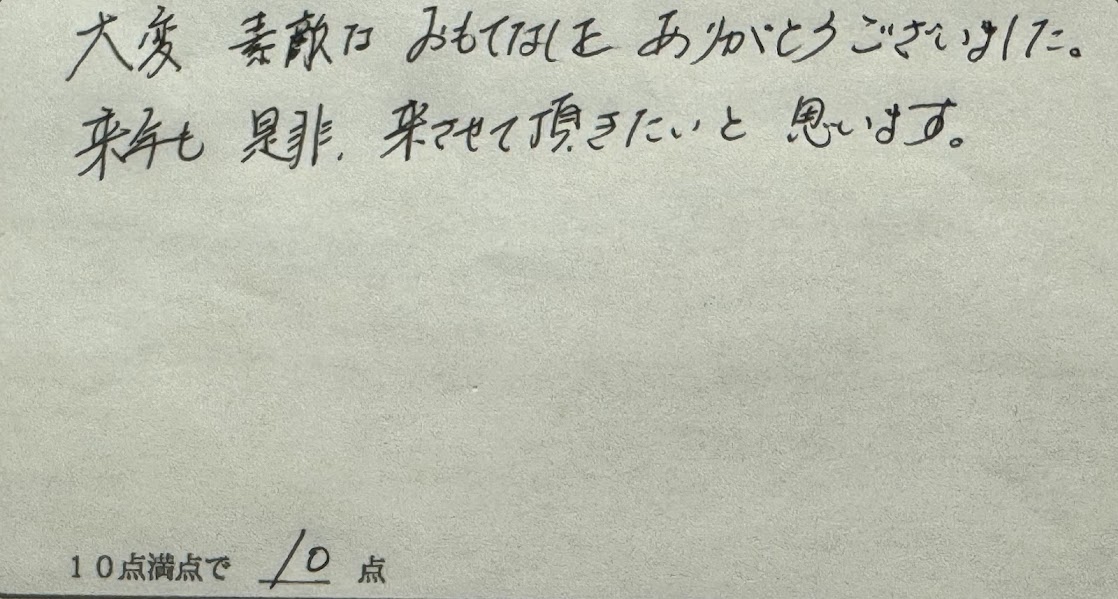 大変 素敵な おもてなしを ありがとうございました。
来年も 是非、来させて頂きたいと 思います。
10点満点で 10 点